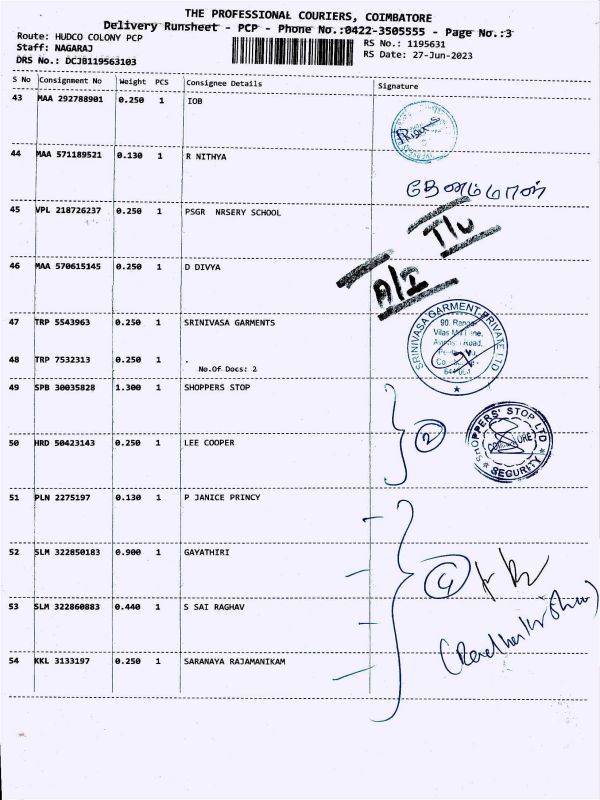 THE PROFESSIONAL COURIERS, COIMBATORE
Delivery Runsheet - PCP - Phone No.:0422-3505555 - Page No.:3
Route: HUDCO COLONY PCP
RS No.: 1195631
Staff: NAGARAJ
RS Date: 27-Jun-2023
DRS No.: DCJB119563103
S No Consignment No Weight PCS Consignee Details Signature
43 MAA 292788901 0.250 1 IOB
44 MAA 571189521 0.130 1 R NITHYA
45 VPL 218726237 0.250 1 PSGR NRSERY SCHOOL
46 MAA 570615145 0.250 1 D DIVYA
A/I
47 TRP 5543963 0.250 1 SRINIVASA GARMENTS
SRINIVASA GARMENT PRIVATE LTD
48 TRP 7532313 0.250 1 .
No.Of Docs: 2
49 SPB 30035828 1.300 1 SHOPPERS STOP
2
SHOPPERS' STOP LTD
COIMBATORE
SEGURITY
50 HRD 50423143 0.250 1 LEE COOPER
51 PLN 2275197 0.130 1 P JANICE PRINCY
52 SLM 322850183 0.900 1 GAYATHIRI
4
53 SLM 322860883 0.440 1 S SAI RAGHAV
54 KKL 3133197 0.250 1 SARANAYA RAJAMANIKAM